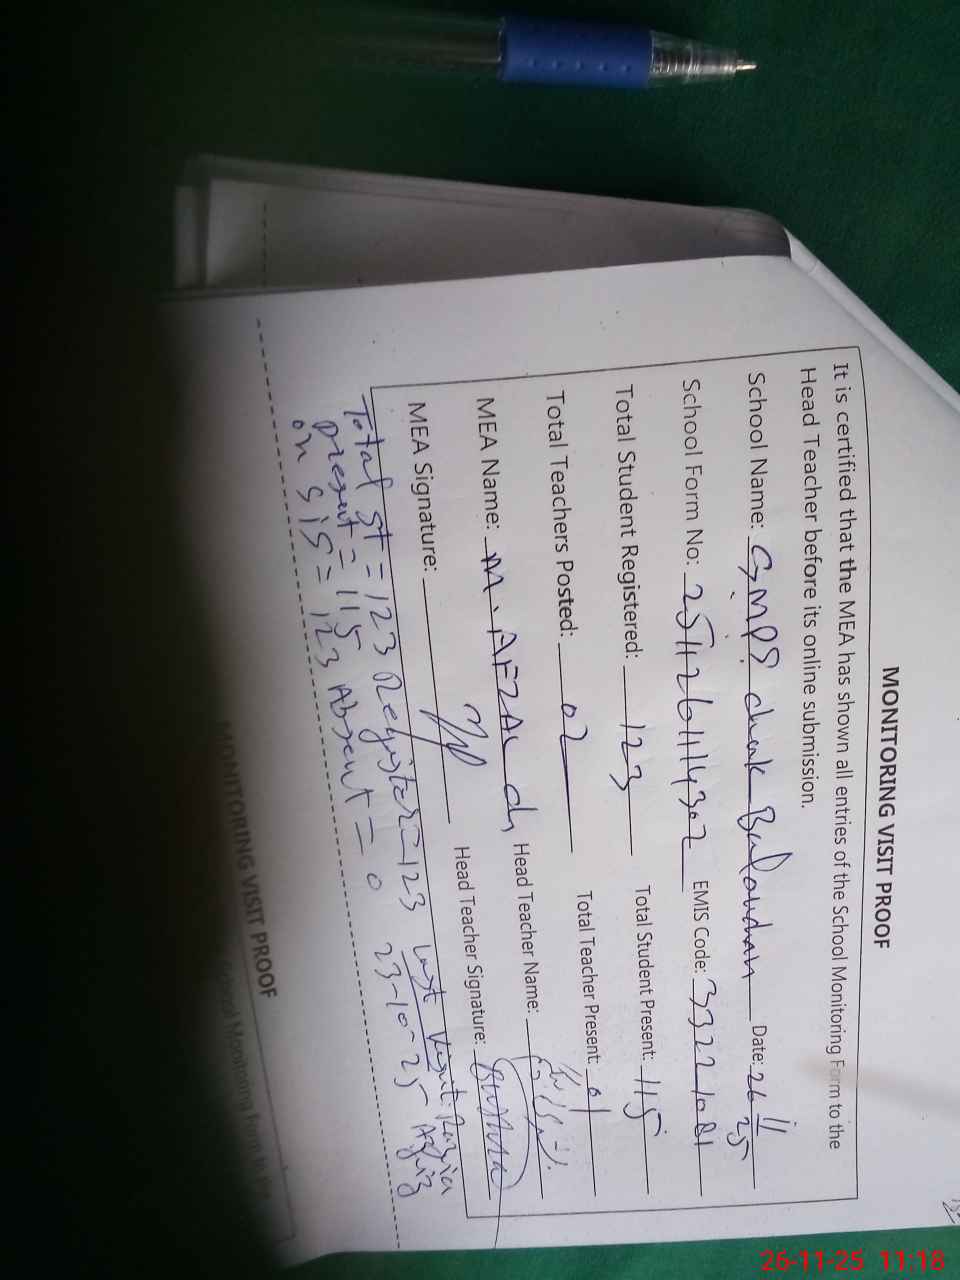 MONITORING VISIT PROOF
It is certified that the MEA has shown all entries of the School Monitoring Form to the
Head Teacher before its online submission.
School Name: GMPS chak Balouchan Date: 26 11 25
School Form No: 2511261114302 EMIS Code: 33221081
Total Student Registered: 123 Total Student Present: 115
Total Teachers Posted: 02 Total Teacher Present: 01
MEA Name: M. AFZAL ch Head Teacher Name:
MEA Signature: Head Teacher Signature:
Total st = 123 Register = 123 Last Visit: Razia
present = 115 Absent = 0 23-10-25
on SIS = 123
MONITORING VISIT PROOF
School Monitoring Form to the
26-11-25 11:18